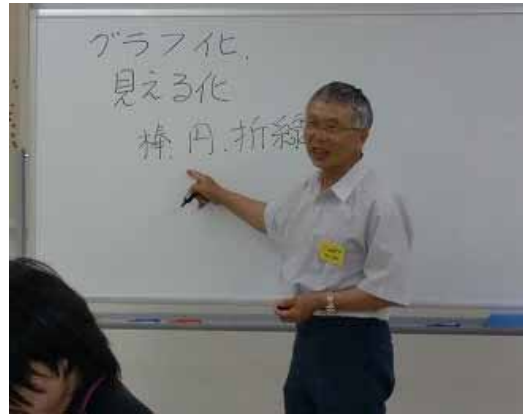 グラフ化、
見える化
棒、円、折線